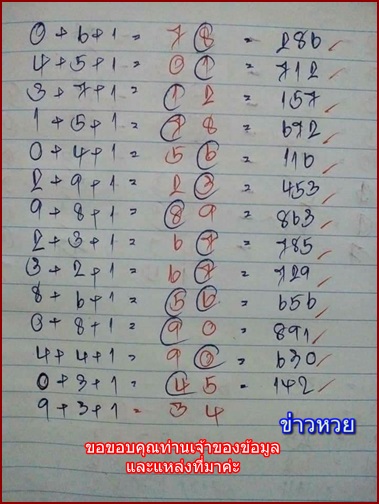 0 + 6 + 1 = 7 8 = 286
4 + 5 + 1 = 0 1 = 712
3 + 7 + 1 = 1 2 = 157
1 + 5 + 1 = 7 8 = 672
0 + 4 + 1 = 5 6 = 116
2 + 9 + 1 = 2 3 = 453
9 + 8 + 1 = 8 9 = 863
2 + 3 + 1 = 6 7 = 785
3 + 2 + 1 = 6 7 = 729
8 + 6 + 1 = 5 6 = 656
0 + 8 + 1 = 9 0 = 891
4 + 4 + 1 = 9 0 = 630
0 + 3 + 1 = 4 5 = 142
9 + 3 + 1 = 3 4
ข่าวหวย
ขอขอบคุณท่านเจ้าของข้อมูล
และแหล่งที่มาค่ะ